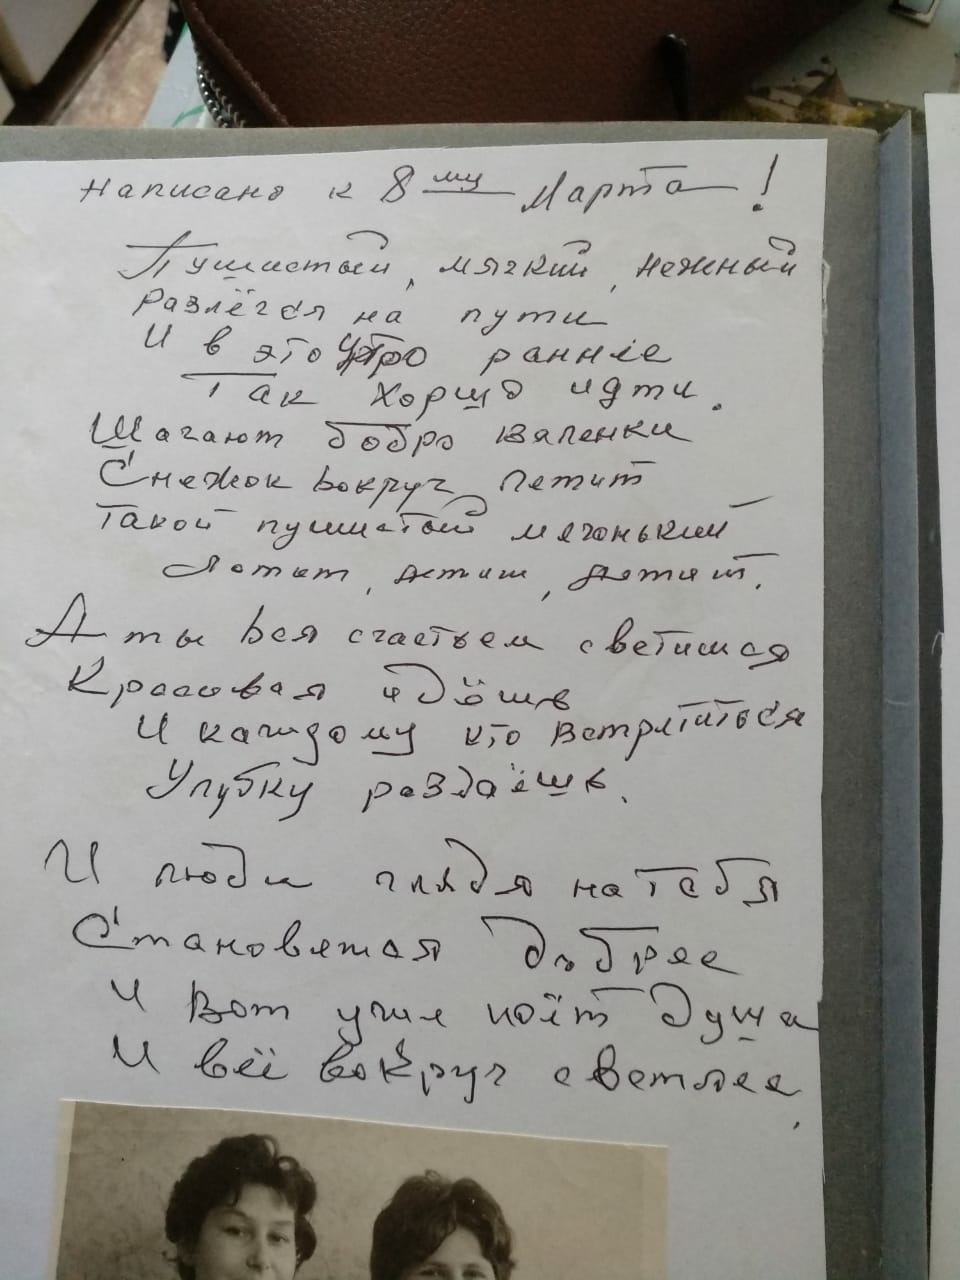 Написано к 8му Марта!
Пушистый, мягкий, нежный
Разлёгся на пути
И в это утро раннее
Так хорошо идти.
Шагают бодро валенки
Снежок вокруг летит
Такой пушистый мягонький
Летит, летит, летит.
А ты вся счастьем светишся
Красивая идёшь
И каждому кто встретиться
Улыбку раздаёшь.
И люди глядя на тебя
Становятся добрее
И вот уже поёт душа
И всё вокруг светлее.